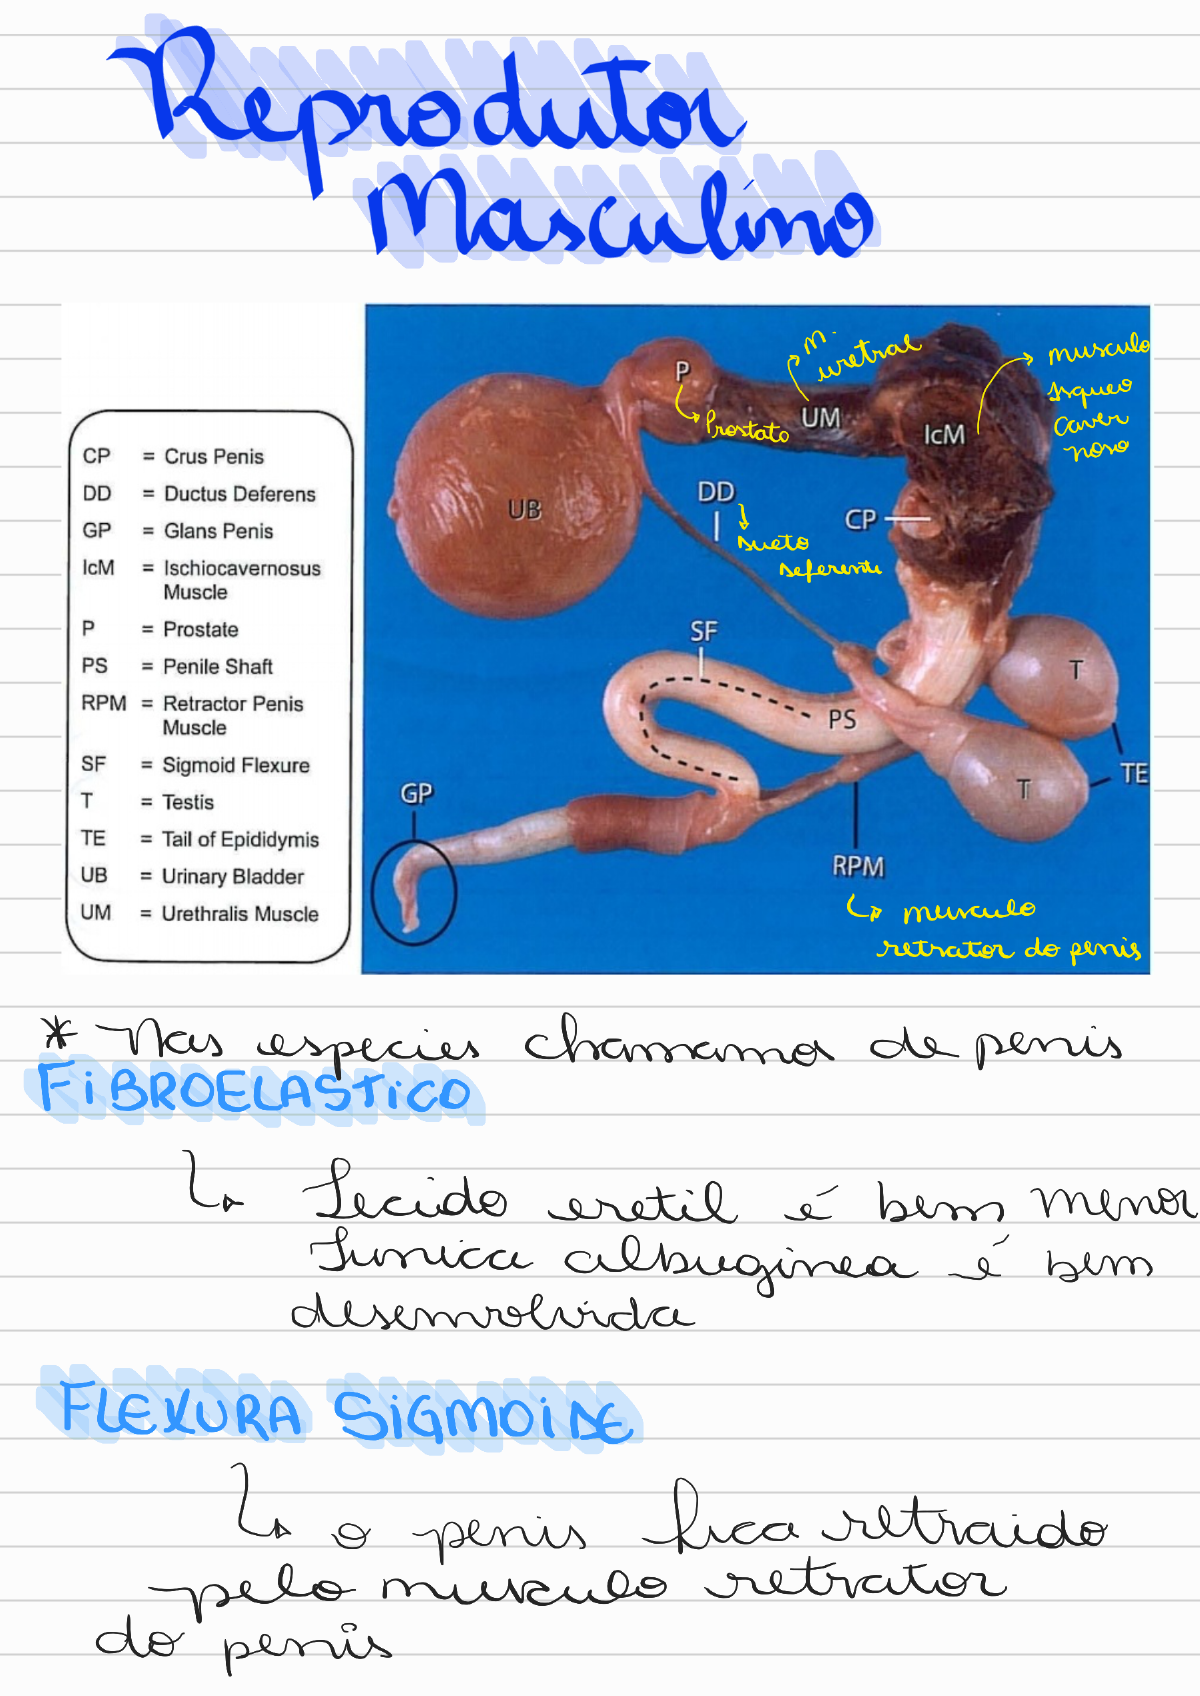 Reprodutor
Masculino
CP = Crus Penis
DD = Ductus Deferens
GP = Glans Penis
IcM = Ischiocavernosus
Muscle
P = Prostate
PS = Penile Shaft
RPM = Retractor Penis
Muscle
SF = Sigmoid Flexure
T = Testis
TE = Tail of Epididymis
UB = Urinary Bladder
UM = Urethralis Muscle
P
Prostato
M.
uretral
UM
IcM
musculo
isqueo
caver
noso
UB
DD
dueto
deferente
CP
SF
PS
T
T
TE
GP
RPM
musculo
retrator do penis
* Nas especies chamamos de penis
FiBROELASTiCO
Tecido eretil é bem menor
Tunica albuginea é bem
desenvolvida
FLEXURA SiGMOiDE
o penis fica retraido
pelo musculo retrator
do penis